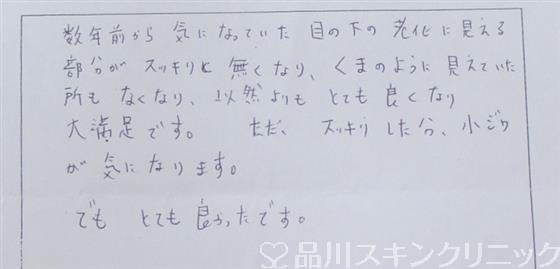 数年前から 気になっていた 目の下の 老化に見える
部分が スッキリと 無くなり、くまのように 見えていた
所も なくなり、以然よりも とても 良くなり
大満足です。 ただ、スッキリした分、小ジワ
が 気になります。
でも とても 良かったです。
品川スキンクリニック